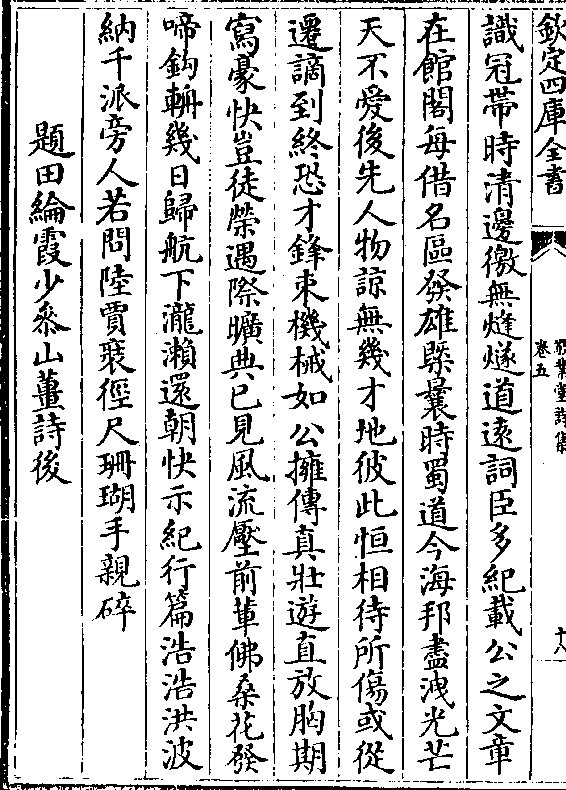 欽定四庫全書
敬業堂詩集
卷五
十八
識冠帶時清邊徼無烽燧道遠詞臣多紀載公之文章
在館閣每借名區發雄槩曩時蜀道今海邦盡洩光芒
天不愛後先人物諒無幾才地彼此恒相待所傷或從
遷謫到終恐才鋒束機械如公擁傳真壯遊直放胸期
寫豪快豈徒榮遇際曠典已見風流壓前輩佛桑花發
啼鈎輈幾日歸航下瀧瀨還朝快示紀行篇浩浩洪波
納千派旁人若問陸賈裝徑尺珊瑚手親碎
題田綸霞少叅山薑詩後